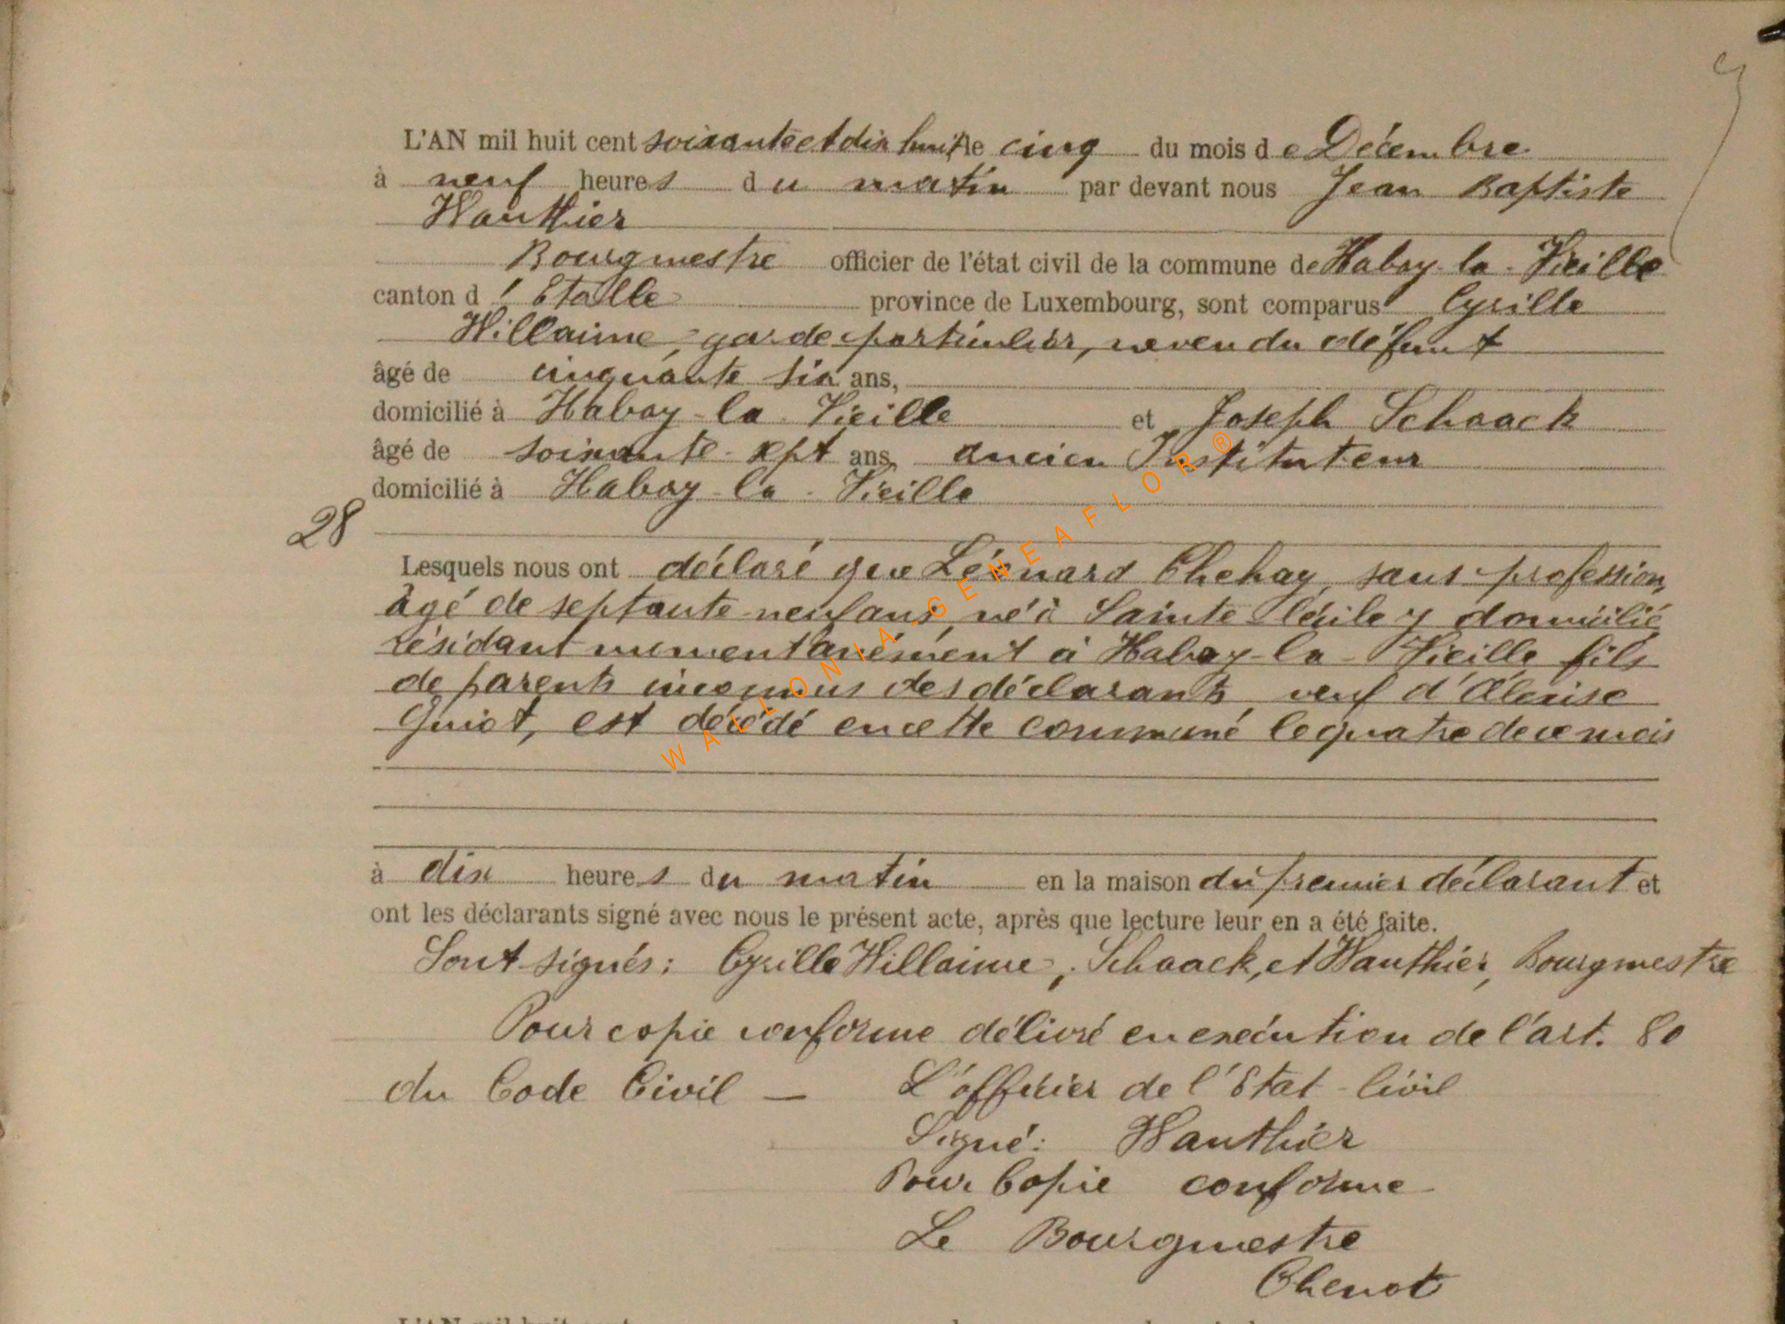 L'AN mil huit cent soixante et dix huit le cinq du mois de Décembre
à neuf heures du matin par devant nous Jean Baptiste
Wauthier
Bourgmestre officier de l'état civil de la commune de Habay-la-Vieille
canton d'Etalle province de Luxembourg, sont comparus Cyrille
Willaime, garde particulier, neveu du défunt
âgé de cinquante six ans,
domicilié à Habay-la-Vieille et Joseph Schaack
âgé de soixante-sept ans, ancien Instituteur
domicilié à Habay-la-Vieille
28
Lesquels nous ont déclaré que Léonard Chehay, sans profession,
âgé de septante-neuf ans, né à Sainte Cécile y domicilié
résidant momentanément à Habay-la-Vieille fils
de parents inconnus des déclarants, veuf d'
Guiot, est décédé en cette commune le quatre de ce mois
à dix heures du matin en la maison du premier déclarant et
ont les déclarants signé avec nous le présent acte, après que lecture leur en a été faite.
Sont signés: Cyrille Willaime, Schaack, et Wauthier, Bourgmestre
Pour copie conforme délivré en exécution de l'art. 80
du Code Civil — L'officier de l'Etat-Civil
Signé: Wauthier
Pour Copie conforme
Le Bourgmestre
Chenot
WALLONIA-GENEAFLOR®